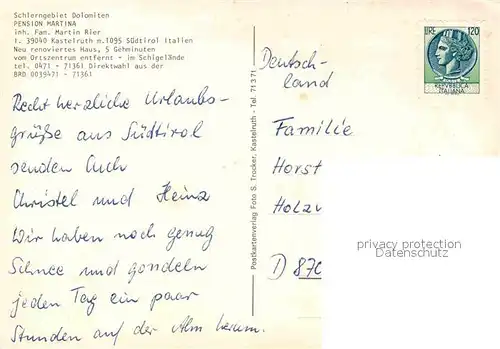 Schlerngebiet Dolomiten
PENSION MARTINA
inh. Fam. Martin Rier
I. 39040 Kastelruth m.1095 Südtirol Italien
Neu renoviertes Haus, 5 Gehminuten
vom Ortszentrum entfernt - im Schigelände
tel. 0471 - 71361 Direktwahl aus der
BRD 0039471 - 71361
Recht herzliche Urlaubs-
grüße aus Südtirol
senden Euch
Christel und Heinz
Wir haben noch genug
Schnee und gondeln
jeden Tag ein paar
Stunden auf der Alm herum.
Postkartenverlag Foto S. Trocker, Kastelruth - Tel. 71371
LIRE 120
Deutsch-
land
Familie
Horst
Holzw
D 870
privacy protection
Datenschutz